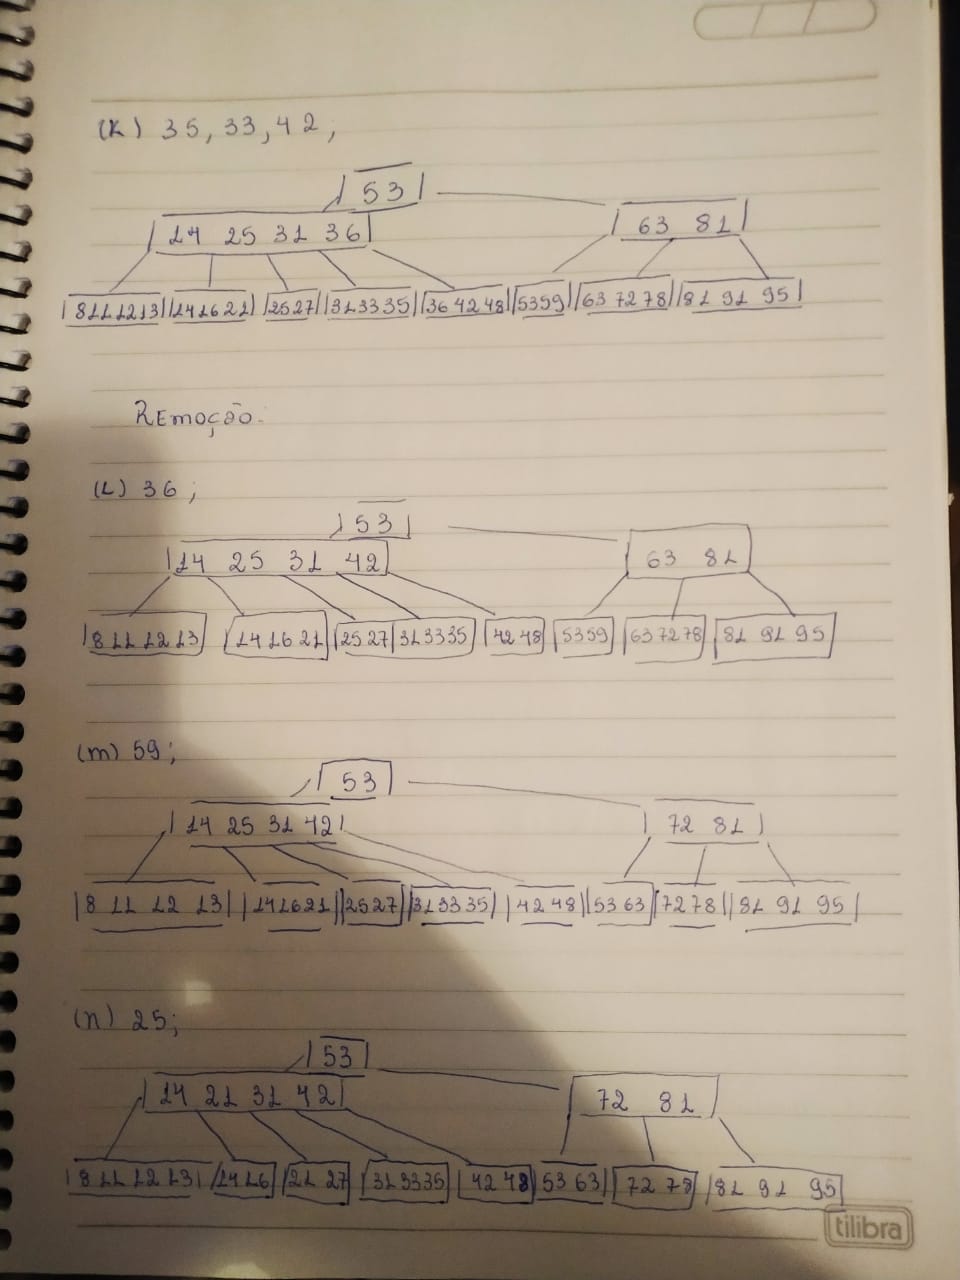 (K) 35, 33, 42;
53
14 25 31 36 63 81
8 11 12 13 14 16 21 25 27 31 33 35 36 42 48 53 59 63 72 78 81 91 95
Remoção.
(L) 36;
53
14 25 31 42 63 81
8 11 12 13 14 16 21 25 27 31 33 35 42 48 53 59 63 72 78 81 91 95
(m) 59;
53
14 25 31 42 72 81
8 11 12 13 14 16 21 25 27 31 33 35 42 48 53 63 72 78 81 91 95
(n) 25;
53
14 21 31 42 72 81
8 11 12 13 14 16 21 27 31 33 35 42 48 53 63 72 78 81 91 95
tilibra